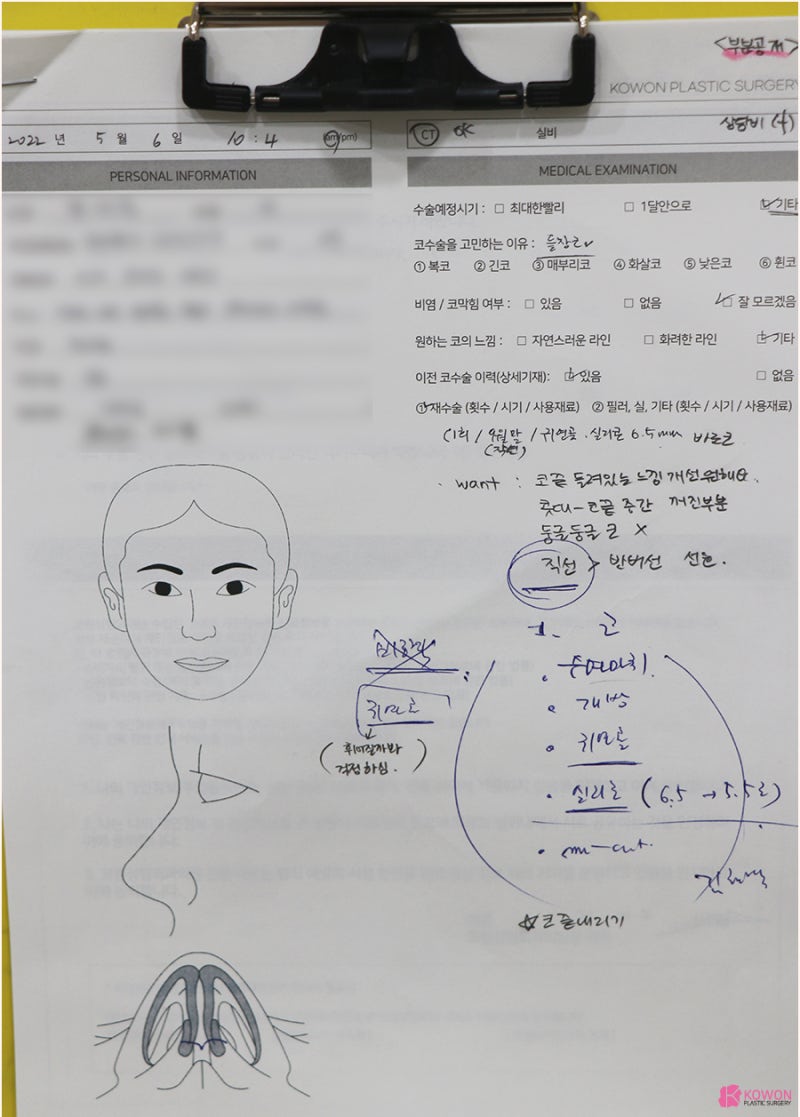 <부분공개>
KOWON PLASTIC SURGERY
2022 년 5 월 6 일 10 : 4 (am/pm)
CT OK 실비 상담비 (+)
PERSONAL INFORMATION
MEDICAL EXAMINATION
수술예정시기 : □ 최대한빨리 □ 1달안으로 □ 기타
코수술을 고민하는 이유 : 들창코
① 복코 ② 긴코 ③ 매부리코 ④ 화살코 ⑤ 낮은코 ⑥ 휜코
비염 / 코막힘 여부 : □ 있음 □ 없음 □ 잘 모르겠음
원하는 코의 느낌 : □ 자연스러운 라인 □ 화려한 라인 □ 기타
이전 코수술 이력(상세기재): □ 있음 □ 없음
① 재수술 (횟수 / 시기 / 사용재료) ② 필러, 실, 기타 (횟수 / 시기 / 사용재료)
(1회 / 9월말 / 귀연골. 실리콘 6.5mm 바른코
(작년)
want : 코끝 들려있는 느낌 개선원해요.
콧대-코끝 중간 꺼진부분
둥글둥글 코 X
직선 > 반버선 선호.
코
수면마취.
개방
귀연골
귀연골
실리콘 (6.5 → 5.5로)
걱정하심.
☆코끝내리기
KOWON
PLASTIC SURGERY